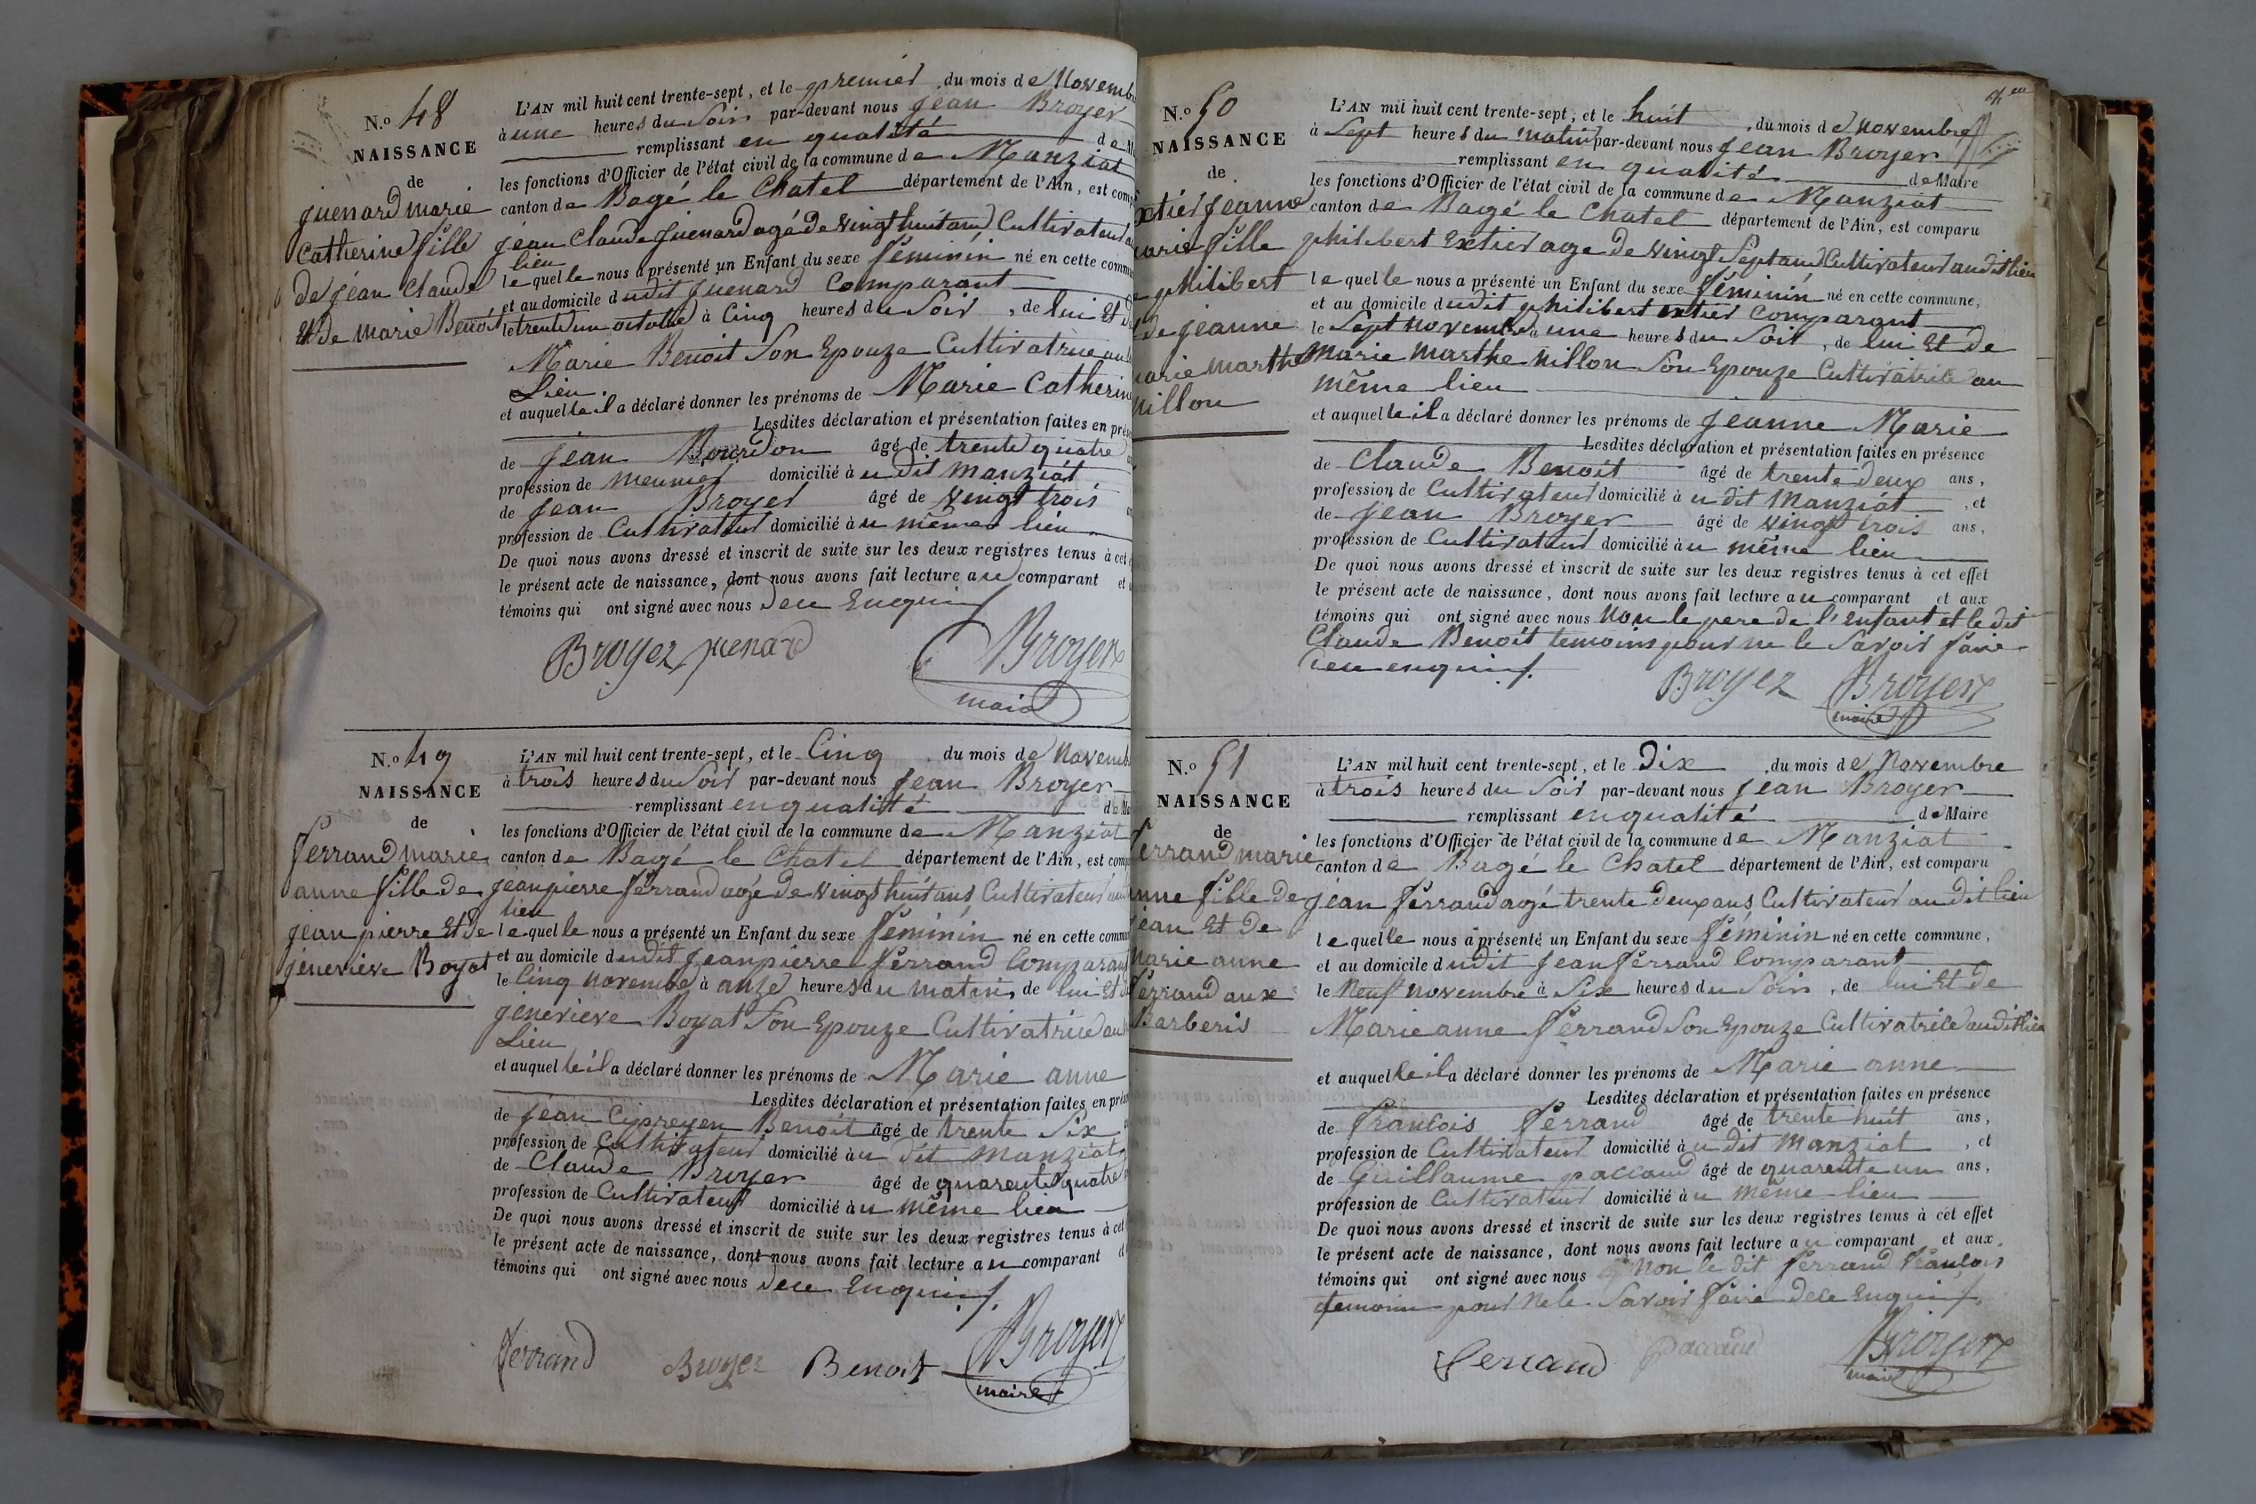 N.o 48
NAISSANCE
de
juenard marie
Catherine fille
de jean Claude
Et de marie Benoit
L'AN mil huit cent trente-sept, et le premier du mois de Novemb
à une heures du Soir par-devant nous Jean Broyer
remplissant en qualité de M
les fonctions d'Officier de l'état civil de la commune de Manziat
canton de Bagé le Chatel département de l'Ain, est comp
jean Claude juenard agé de vingt huit ans Cultivateur au
lieu
lequel le nous a présenté un Enfant du sexe féminin né en cette commu
et au domicile dudit juenard Comparant
le trente un octobre à Cinq heures du Soir, de lui Et de
Marie Benoit Son Epouze Cultivatrice au
Lieu.
et auquel le il a déclaré donner les prénoms de Marie Catherin
Lesdites déclaration et présentation faites en prés
de Jean Bourdon âgé de trente quatre
profession de meunier domicilié à u dit Manziat
de Jean Broyer âgé de vingt trois
profession de Cultivateur domicilié à u même lieu
De quoi nous avons dressé et inscrit de suite sur les deux registres tenus à cet
le présent acte de naissance, dont nous avons fait lecture au comparant et
témoins qui ont signé avec nous dece Enquis
Broyer juenard Broyer
maire
N.o 49
NAISSANCE
de
ferrand marie
anne fille de
jean pierre Et de
genevieve Boyat
L'AN mil huit cent trente-sept, et le Cinq du mois de Novemb
à trois heures du Soir par-devant nous Jean Broyer
remplissant en qualité de Ma
les fonctions d'Officier de l'état civil de la commune de Manziat
canton de Bagé le Chatel département de l'Ain, est comp
jean pierre ferrand agé de vingt huit ans Cultivateur au
lieu
lequel le nous a présenté un Enfant du sexe féminin né en cette commu
et au domicile dudit jean pierre ferrand Comparant
le Cinq novembre à onze heures du matin, de lui Et de
genevieve Boyat Son Epouze Cultivatrice au
Lieu
et auquel le il a déclaré donner les prénoms de Marie anne
Lesdites déclaration et présentation faites en prés
de jean Cypreyen Benoit âgé de trente Six
profession de Cultivateur domicilié à u dit manziat
de Claude Broyer âgé de quarente quatre
profession de Cultivateur domicilié à u même lieu
De quoi nous avons dressé et inscrit de suite sur les deux registres tenus à cet
le présent acte de naissance, dont nous avons fait lecture au comparant
témoins qui ont signé avec nous dece Enquis
ferrand Broyer Benoit Broyer
maire
N.o 50
NAISSANCE
de
xtier jeanne
arie fille
philibert
de jeanne
arie marthe
Nillon
L'AN mil huit cent trente-sept, et le huit du mois de Novembre
à Sept heures du matin par-devant nous Jean Broyer
remplissant en qualité de Maire
les fonctions d'Officier de l'état civil de la commune de Manziat
canton de Bagé le Chatel département de l'Ain, est comparu
philibert Extier age de vingt Sept ans Cultivateur au dit lieu
lequel le nous a présenté un Enfant du sexe féminin né en cette commune,
et au domicile dudit philibert extier comparant
le Sept novembre à une heures du Soir, de lui Et de
Marie marthe Nillon Son Epouze Cultivatrice au
même lieu
et auquel le il a déclaré donner les prénoms de Jeanne Marie
Lesdites déclaration et présentation faites en présence
de Claude Benoit âgé de trente deux ans,
profession de Cultivateur domicilié à u dit Manziat, et
de Jean Broyer âgé de vingt trois ans,
profession de Cultivateur domicilié à u même lieu
De quoi nous avons dressé et inscrit de suite sur les deux registres tenus à cet effet
le présent acte de naissance, dont nous avons fait lecture au comparant et aux
témoins qui ont signé avec nous Non le pere de l'enfant et le dit
Claude Benoit temoins pour ne le Savoir faire
enquis
Broyer Broyer
maire
N.o 51
NAISSANCE
de
ferrand marie
anne fille de
jean Et de
Marie anne
ferrand aux
Barberis
L'AN mil huit cent trente-sept, et le Dix du mois de Novembre
à trois heures du Soir par-devant nous Jean Broyer
remplissant en qualité de Maire
les fonctions d'Officier de l'état civil de la commune de Manziat
canton de Bagé le Chatel département de l'Ain, est comparu
jean ferrand agé trente deux ans Cultivateur au dit lieu
lequel le nous a présenté un Enfant du sexe féminin né en cette commune,
et au domicile dudit Jean ferrand Comparant
le Neuf novembre à Six heures du Soir, de lui Et de
Marie anne ferrand Son Epouze Cultivatrice audit lieu
et auquel le il a déclaré donner les prénoms de Marie anne
Lesdites déclaration et présentation faites en présence
de francois ferrand âgé de trente huit ans,
profession de Cultivateur domicilié à u dit Manziat, et
de Guillaume paccaud âgé de quarente un ans,
profession de Cultivateur domicilié à u même lieu
De quoi nous avons dressé et inscrit de suite sur les deux registres tenus à cet effet
le présent acte de naissance, dont nous avons fait lecture au comparant et aux
témoins qui ont signé avec nous Non le dit ferrand françois
temoin pour ne le Savoir faire dece Enquis
ferrand paccaud Broyer
maire